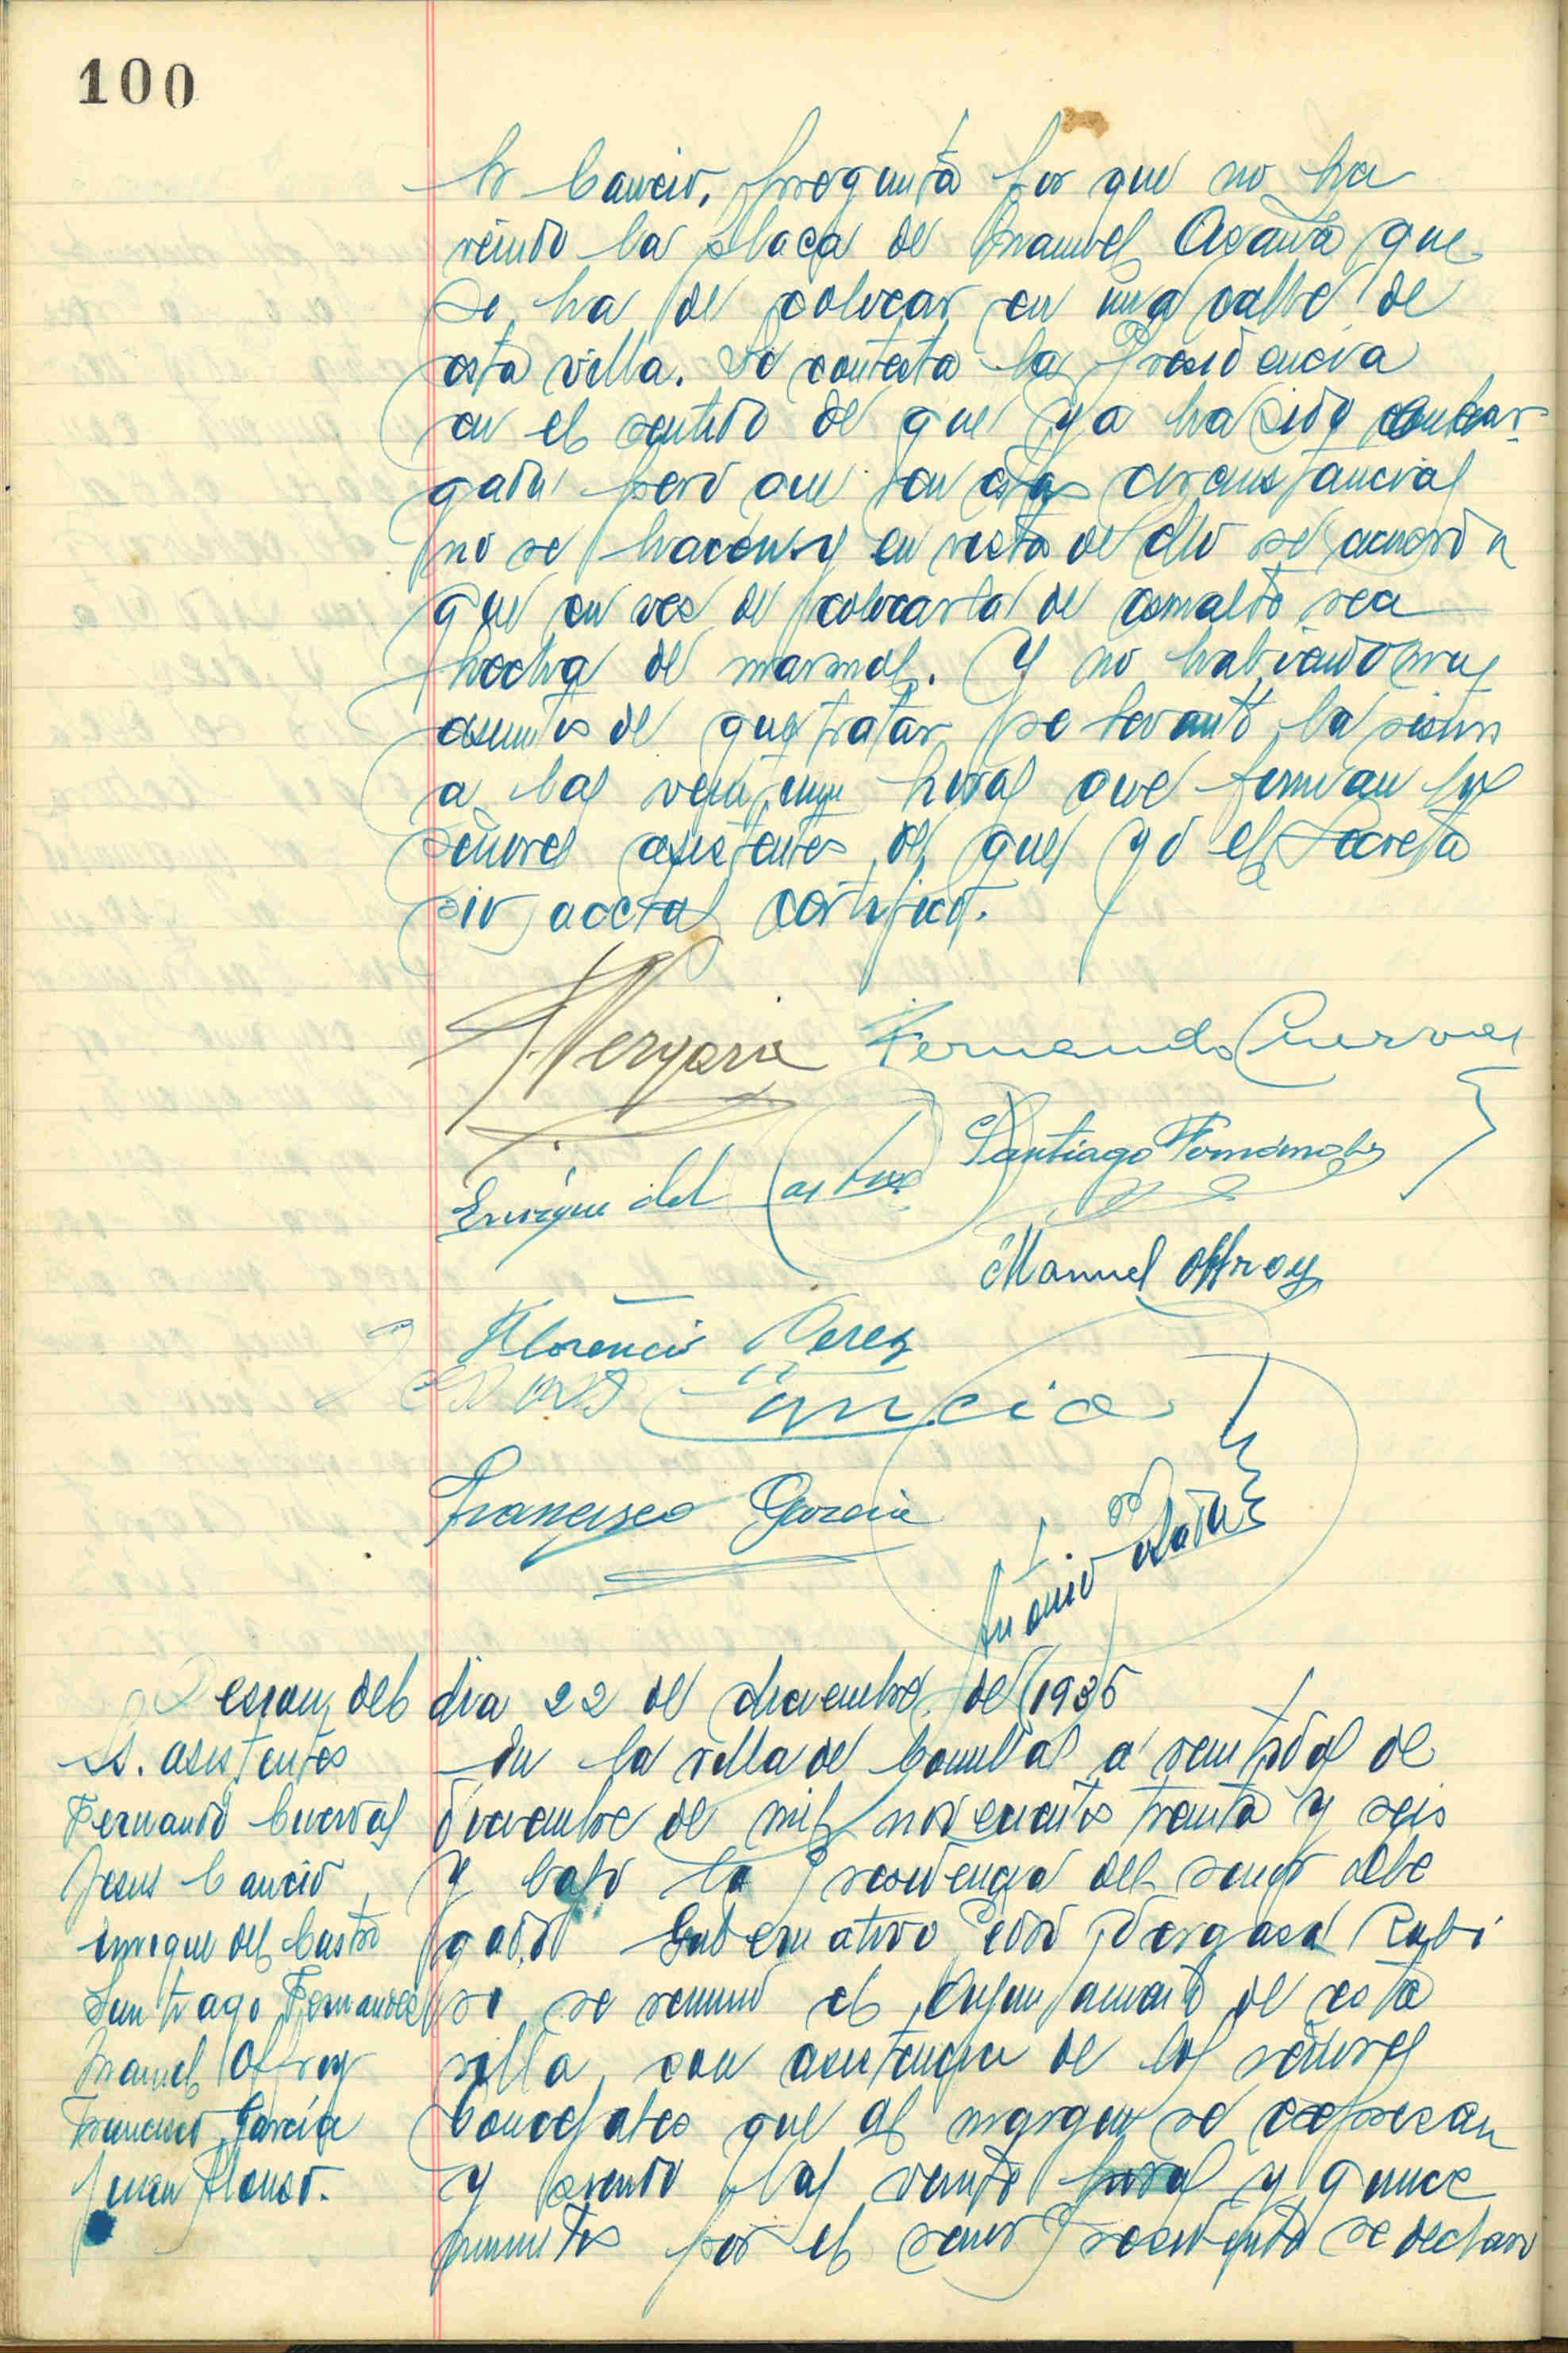 100
Sr Cancio. pregunta por que no ha
venido la placa de Manuel Azaña que
se ha de colocar en una calle de
esta villa. Le contesta la Presidencia
en el sentido de que ya ha sido encar-
gada pero que en estas circunstancias
no se hacen y en vista de ello se acuerda
que en vez de colocarla de esmalte sea
hecha de marmol. Y no habiendo mas
asuntos de que tratar se levantó la sesión
a las veintiuna horas que firman los
señores asistentes de que yo el Secreta
rio acctal certifico.
P. Vergara Fernando Cuervas
Enrique del Castro Santiago Fernandez
Manuel Offroy
Florencio Perez
Jesus Cancio
Francisco Garcia
Antonio
Sesion del dia 22 de diciembre de 1936
S. asistentes
Fernando Cuervas
Jesus Cancio
Enrique del Castro
Santiago Fernandez
Manuel Offroy
Francisco García
Juan Alonso.
En la villa de Comillas a veintidos de
diciembre de mil novecientos treinta y seis
y bajo la presidencia del señor Dele
gado Gubernativo Pedro Vergara Rubi
se reunió el Ayuntamiento de esta
villa con asistencia de los señores
Concejales que al margen se expresan
y siendo las veinte horas y quince
minutos por el señor Presidente se declaro